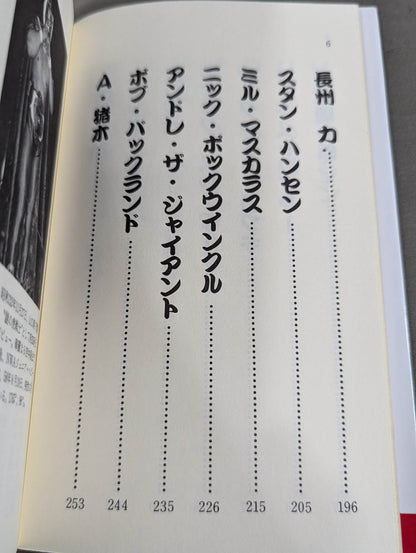 6
長州 力 196
スタン・ハンセン 205
ミル・マスカラス 215
ニック・ボックウインクル 226
アンドレ・ザ・ジャイアント 235
ボブ・バックランド 244
A・猪木 253